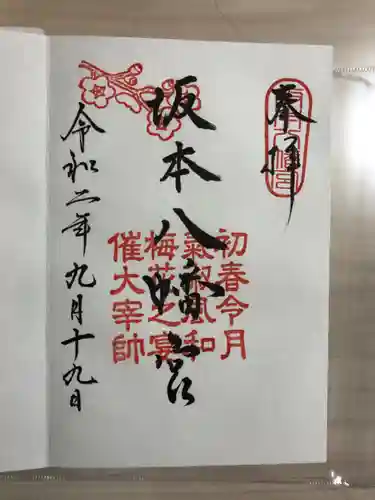 奉拝
坂本八幡宮
初春令月
氣淑風和
梅花之宴
催大宰帥
令和二年九月十九日